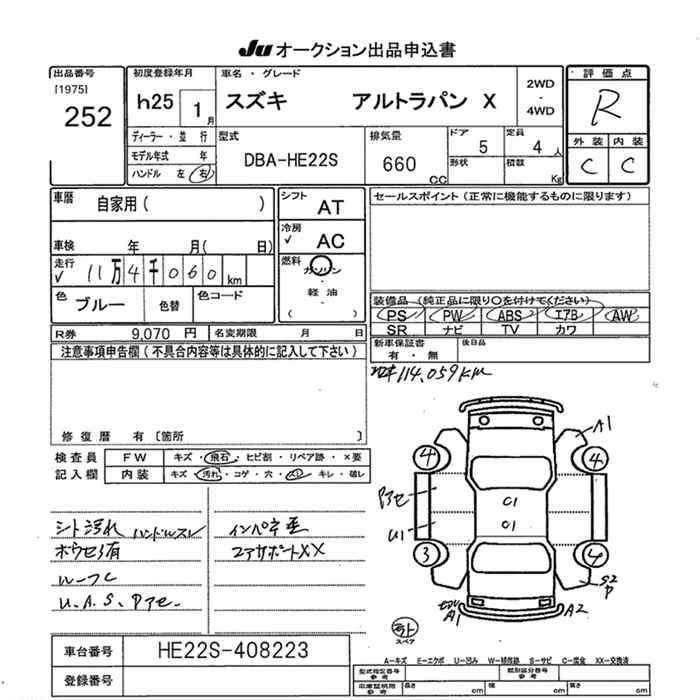 Ju オークション出品申込書
出品番号
[1975]
252
初度登録年月
h25 1月
車名・グレード
スズキ アルトラパン X
2WD
・
4WD
評価点
R
外装 内装
C C
ディーラー・並行
モデル年式 年
ハンドル 左 右
型式
DBA-HE22S
排気量
660 CC
ドア 5
形状
定員 4 人
積数 Kg
車歴
自家用( )
シフト
AT
セールスポイント (正常に機能するものに限ります)
車検 年 月( 日)
冷房
✓ AC
走行
✓ 11万4千060 km
燃料
ガソリン
・
軽油
・
( )
色
ブルー
色替
色コード
装備品 (純正品に限り○を付けてください)
PS PW ABS エアB AW
SR ナビ TV カワ
R券 9,070 円
名変期限 月 日
新車保証書
有・無
後日品
注意事項申告欄 (不具合内容等は具体的に記入して下さい)
114,059km
修復歴 有 〔箇所 〕
検査員
記入欄
FW キズ・飛石・ヒビ割・リペア跡・×要
内装 キズ・汚れ・コゲ・穴・スレ・キレ・破れ
シート汚れ ハンドルスレ
ホウセイ有
ルーフC
U.A.S.Pアセ.
インパネ歪
コアサポートXX
A1
4
4
Pアセ
C1
U1
C1
3
4
S2
P
A1
A2
スペア
車台番号 HE22S-408223
登録番号
A-キズ E-エクボ U-凹み W-補修跡 S-サビ C-腐食 XX-交換済
型式指定番号
参考
類別区分番号
参考
車庫証明用
参考
長さ cm
幅 cm
高さ cm